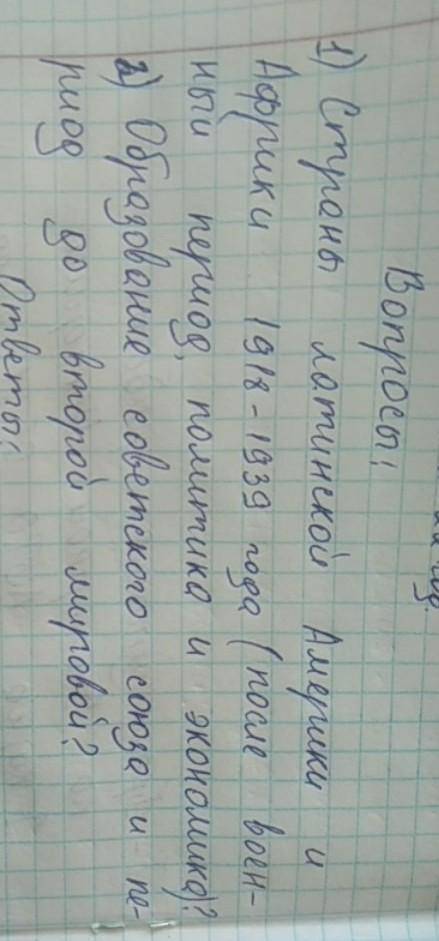 Вопросы:
1) Страны латинской Америки и
Африки 1918-1939 года (после воен-
ный период, политика и экономика)?
2) Образование советского союза и пе-
риод до второй мировой?
Ответы: